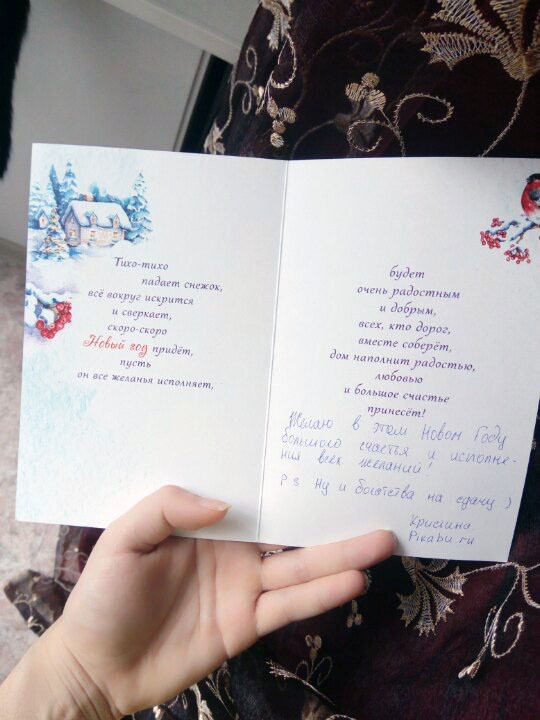 Тихо-тихо
падает снежок,
всё вокруг искрится
и сверкает,
скоро-скоро
Новый год придёт,
пусть
он все желанья исполняет,
будет
очень радостным
и добрым,
всех, кто дорог,
вместе соберёт,
дом наполнит радостью,
любовью
и большое счастье
принесёт!
Желаю в этом Новом Году
большого счастья и исполне-
ния всех желаний!
P S Ну и богатства на сдачу :)
Кристина
Pikabu.ru